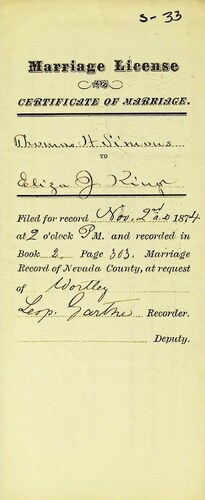 S-33
Marriage License
CERTIFICATE OF MARRIAGE.
Thomas H Simons
TO
Eliza J King
Filed for record Nov. 2nd A.D 1874
at 2 o'clock P M. and recorded in
Book 2, Page 303, Marriage
Record of Nevada County, at request
of Wortley
Leop. Gartne Recorder.
Deputy.